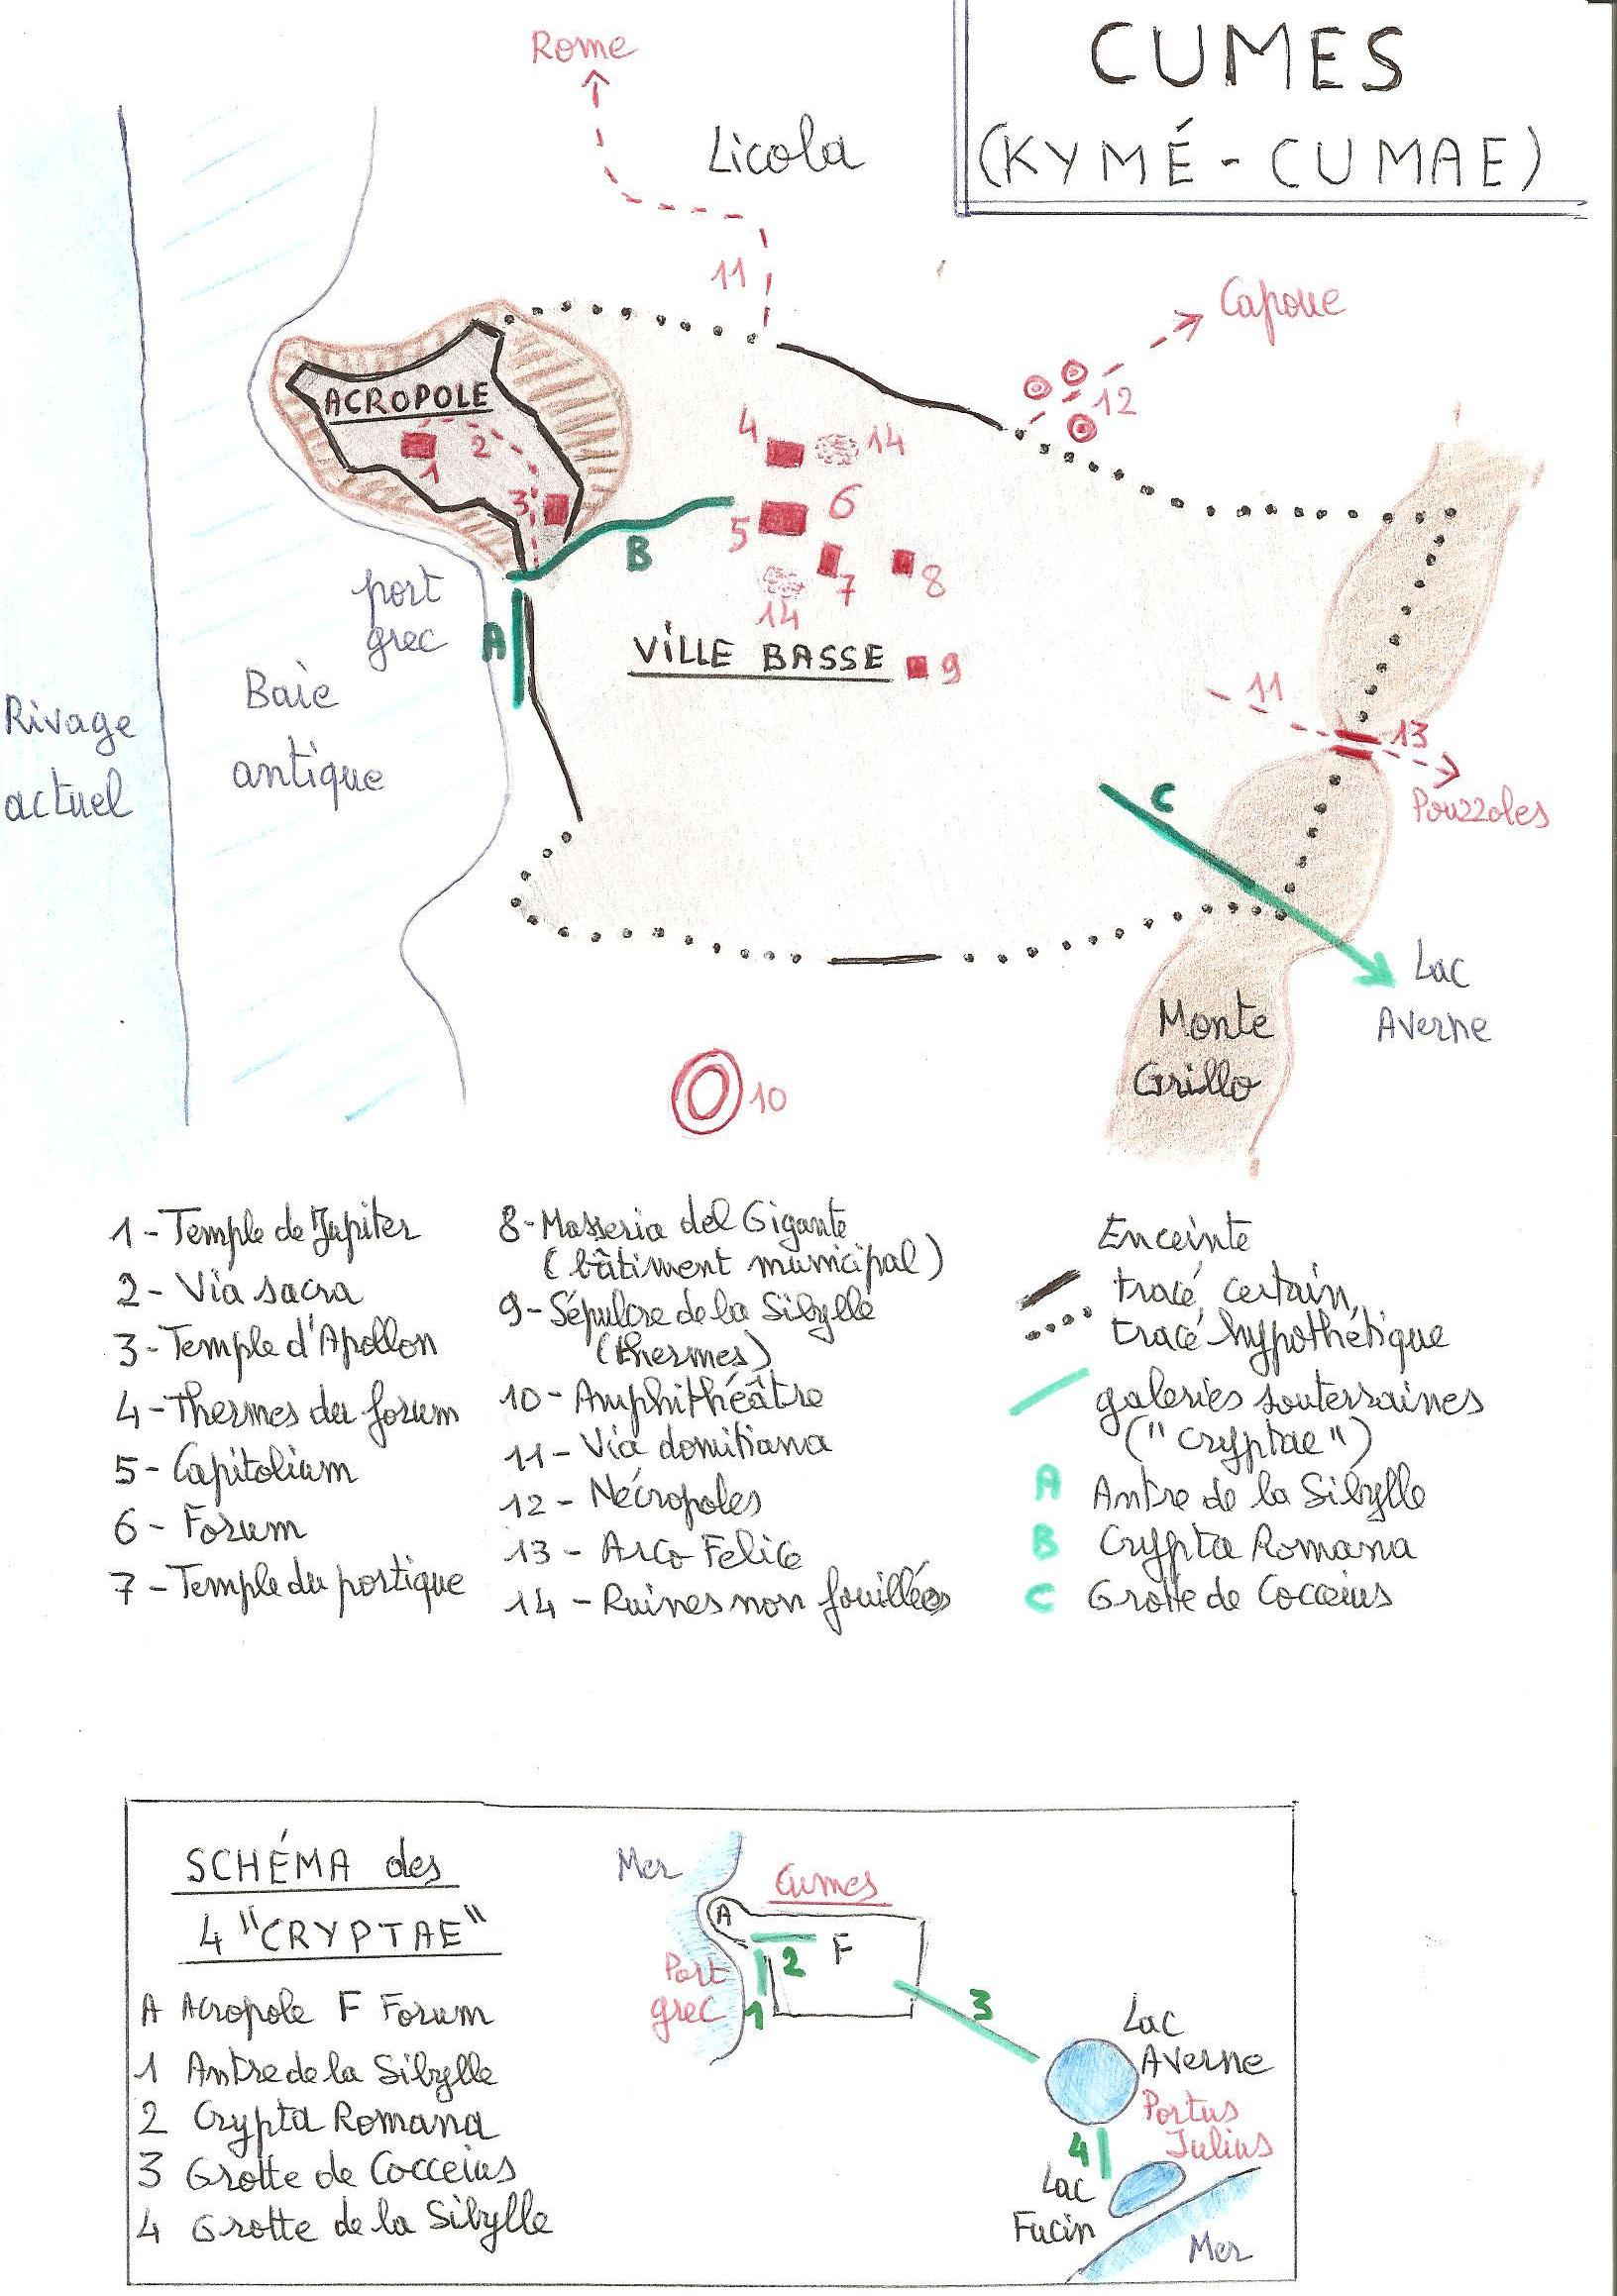 CUMES
(KYMÉ - CUMAE)
Rome
Licola
11
Capoue
12
ACROPOLE
1
2
3
4
14
5
6
7
8
14
B
A
port
grec
VILLE BASSE
9
Baie
antique
Rivage
actuel
11
13
Pouzzoles
C
Lac
Averne
Monte
Grillo
10
1 - Temple de Jupiter
2 - Via sacra
3 - Temple d'Apollon
4 - Thermes du forum
5 - Capitolium
6 - Forum
7 - Temple du portique
8 - Masseria del Gigante
(bâtiment municipal)
9 - Sépulcre de la Sibylle
(thermes)
10 - Amphithéâtre
11 - Via domitiana
12 - Nécropoles
13 - Arco Felice
14 - Ruines non fouillées
Enceinte
tracé certain,
tracé hypothétique
galeries souterraines
("cryptae")
A Antre de la Sibylle
B Crypta Romana
C Grotte de Cocceius
SCHÉMA des
4 "CRYPTAE"
A Acropole F Forum
1 Antre de la Sibylle
2 Crypta Romana
3 Grotte de Cocceius
4 Grotte de la Sibylle
Mer
Cumes
A
F
2
Port
grec
1
3
Lac
Averne
Portus
Julius
4
Lac
Fucin
Mer